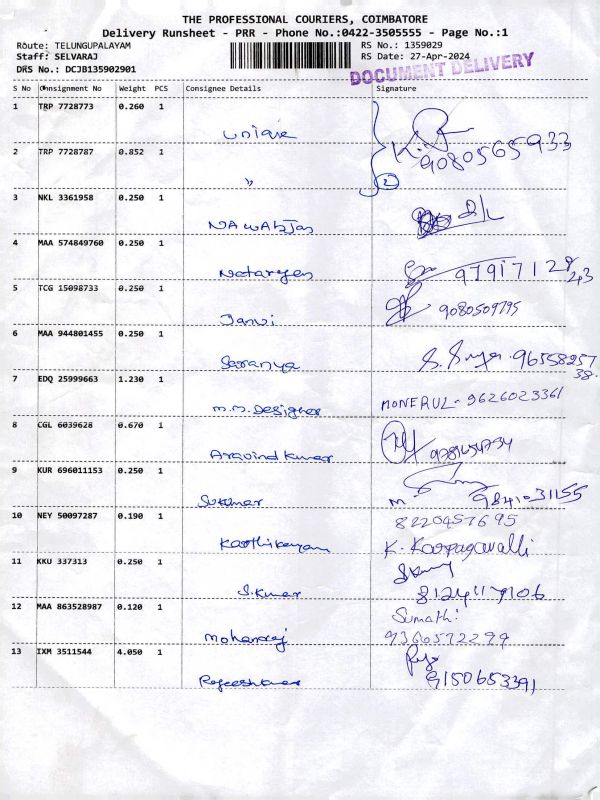 THE PROFESSIONAL COURIERS, COIMBATORE
Delivery Runsheet - PRR - Phone No.:0422-3505555 - Page No.:1
Route: TELUNGUPALAYAM RS No.: 1359029
Staff: SELVARAJ RS Date: 27-Apr-2024
DRS No.: DCJB135902901 DOCUMENT DELIVERY
S No Consignment No Weight PCS Consignee Details Signature
1 TRP 7728773 0.260 1
Unique 9080565933
2 TRP 7728787 0.852 1
" 2
3 NKL 3361958 0.250 1
4 MAA 574849760 0.250 1
Natarajen
5 TCG 15098733 0.250 1
Janvi 9080509795
6 MAA 944801455 0.250 1
Saranya 9655825738.
7 EDQ 25999663 1.230 1
M.M.Designer MONERUL - 9626023361
8 CGL 6039628 0.670 1
Aravind Kumar
9 KUR 696011153 0.250 1
Sukumar M. 9841031155
10 NEY 50097287 0.190 1 8220457695
Karthikeyan K. Karpagavalli
11 KKU 337313 0.250 1
S.Kumar 8124117106
12 MAA 863528987 0.120 1 Sumathi
Mohanraj 9360572299
13 IXM 3511544 4.050 1
Rajeeshkumar 9150653391